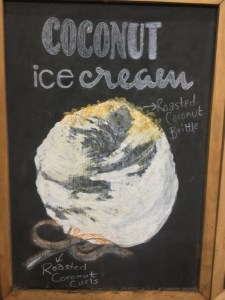 COCONUT
ice cream
Roasted
Coconut
Brittle
Roasted
Coconut
Curls